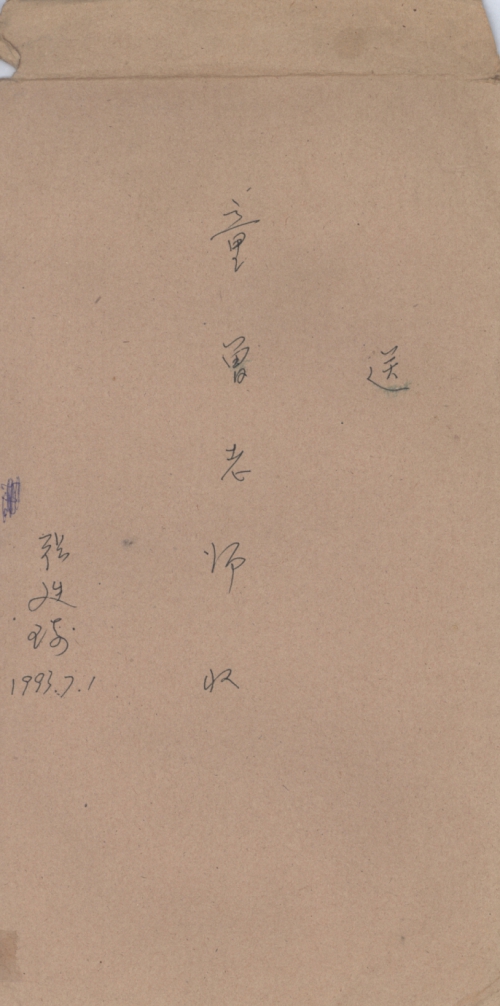 送
童曾老师收
张廷琦
1993.7.1